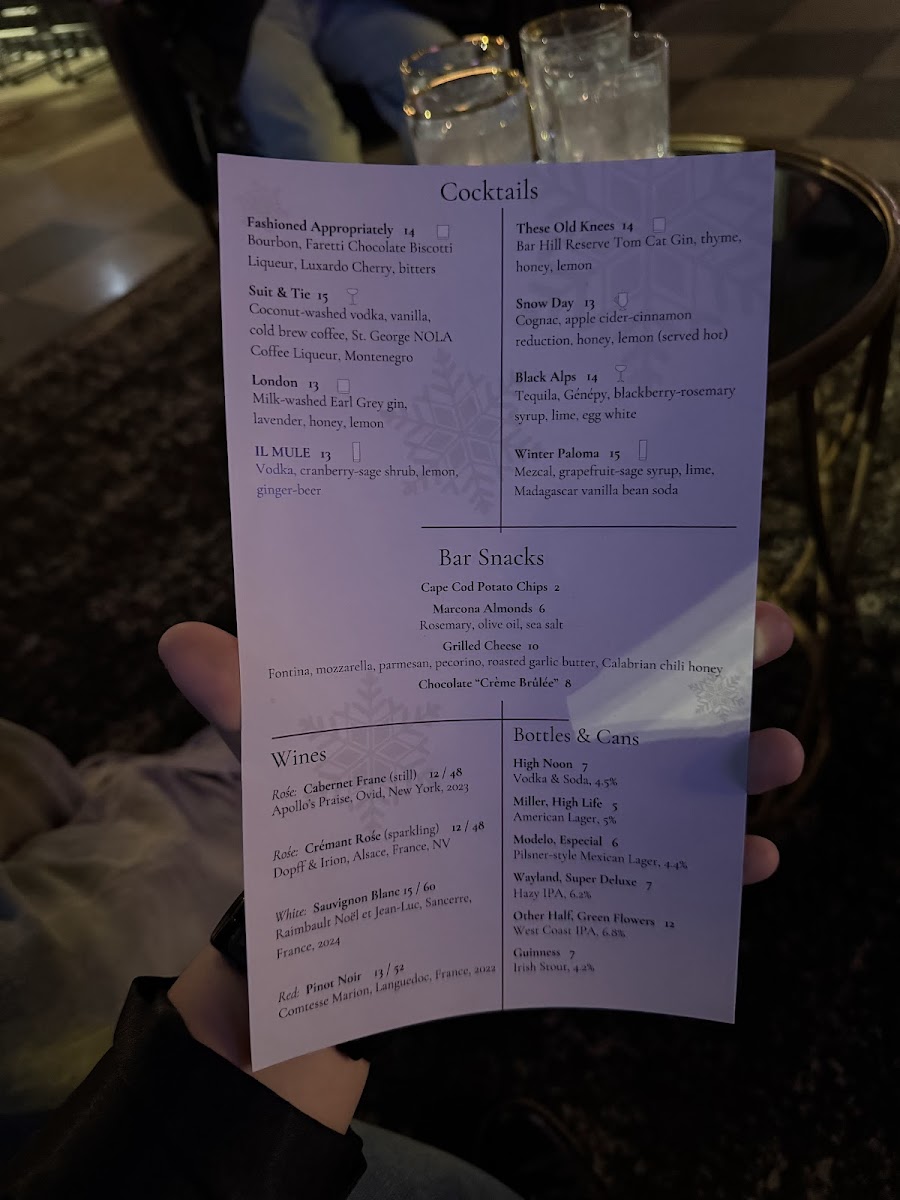 Cocktails
Fashioned Appropriately 14
Bourbon, Faretti Chocolate Biscotti
Liqueur, Luxardo Cherry, bitters
Suit & Tie 15
Coconut-washed vodka, vanilla,
cold brew coffee, St. George NOLA
Coffee Liqueur, Montenegro
London 13
Milk-washed Earl Grey gin,
lavender, honey, lemon
IL MULE 13
Vodka, cranberry-sage shrub, lemon,
ginger-beer
These Old Knees 14
Bar Hill Reserve Tom Cat Gin, thyme,
honey, lemon
Snow Day 13
Cognac, apple cider-cinnamon
reduction, honey, lemon (served hot)
Black Alps 14
Tequila, Génépy, blackberry-rosemary
syrup, lime, egg white
Winter Paloma 15
Mezcal, grapefruit-sage syrup, lime,
Madagascar vanilla bean soda
Bar Snacks
Cape Cod Potato Chips 2
Marcona Almonds 6
Rosemary, olive oil, sea salt
Grilled Cheese 10
Fontina, mozzarella, parmesan, pecorino, roasted garlic butter, Calabrian chili honey
Chocolate “Crème Brûlée” 8
Wines
Rośe: Cabernet Franc (still) 12 / 48
Apollo's Praise, Ovid, New York, 2023
Rośe: Crémant Rośe (sparkling) 12 / 48
Dopff & Irion, Alsace, France, NV
White: Sauvignon Blanc 15 / 60
Raimbault Noël et Jean-Luc, Sancerre,
France, 2024
Red: Pinot Noir 13 / 52
Comtesse Marion, Languedoc, France, 2022
Bottles & Cans
High Noon 7
Vodka & Soda, 4.5%
Miller, High Life 5
American Lager, 5%
Modelo, Especial 6
Pilsner-style Mexican Lager, 4.4%
Wayland, Super Deluxe 7
Hazy IPA, 6.2%
Other Half, Green Flowers 12
West Coast IPA, 6.8%
Guinness 7
Irish Stout, 4.2%